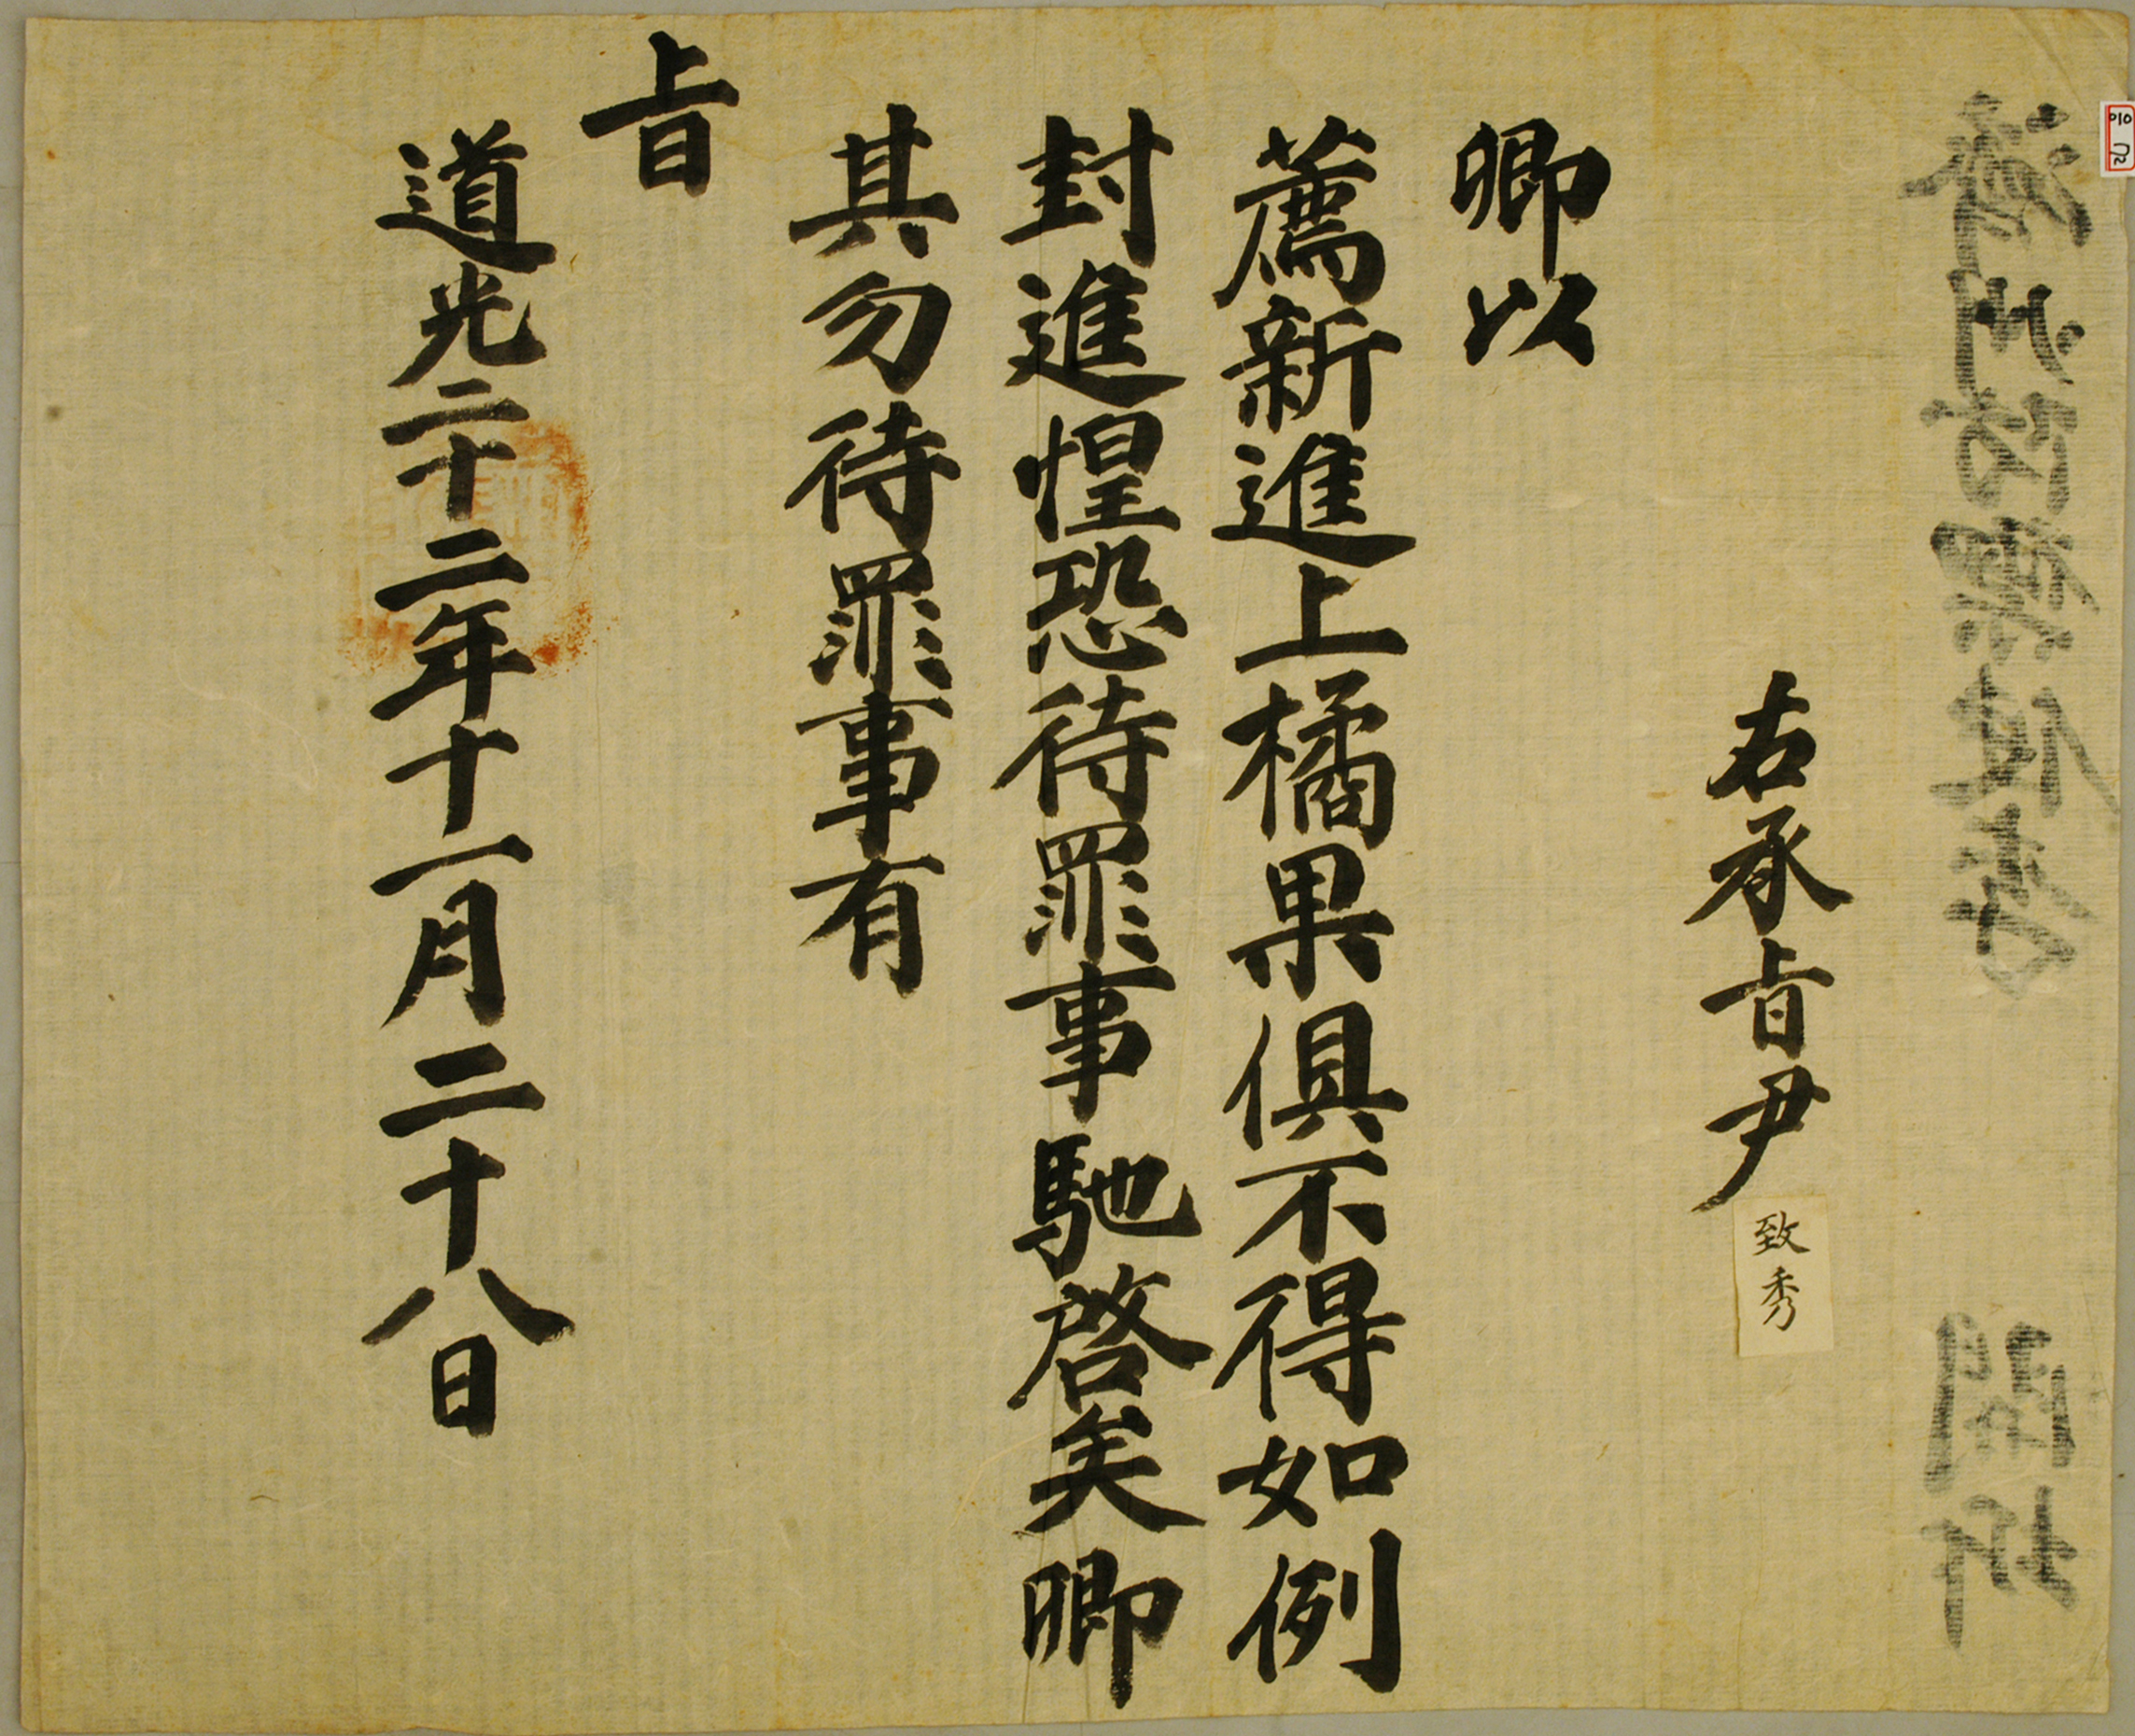 濟州防禦使李 開坼
右承旨尹致秀
卿以
薦新進上橘果俱不得如例
封進惶恐待罪事馳啓矣卿
其勿待罪事有
旨
道光二十二年十一月二十八日